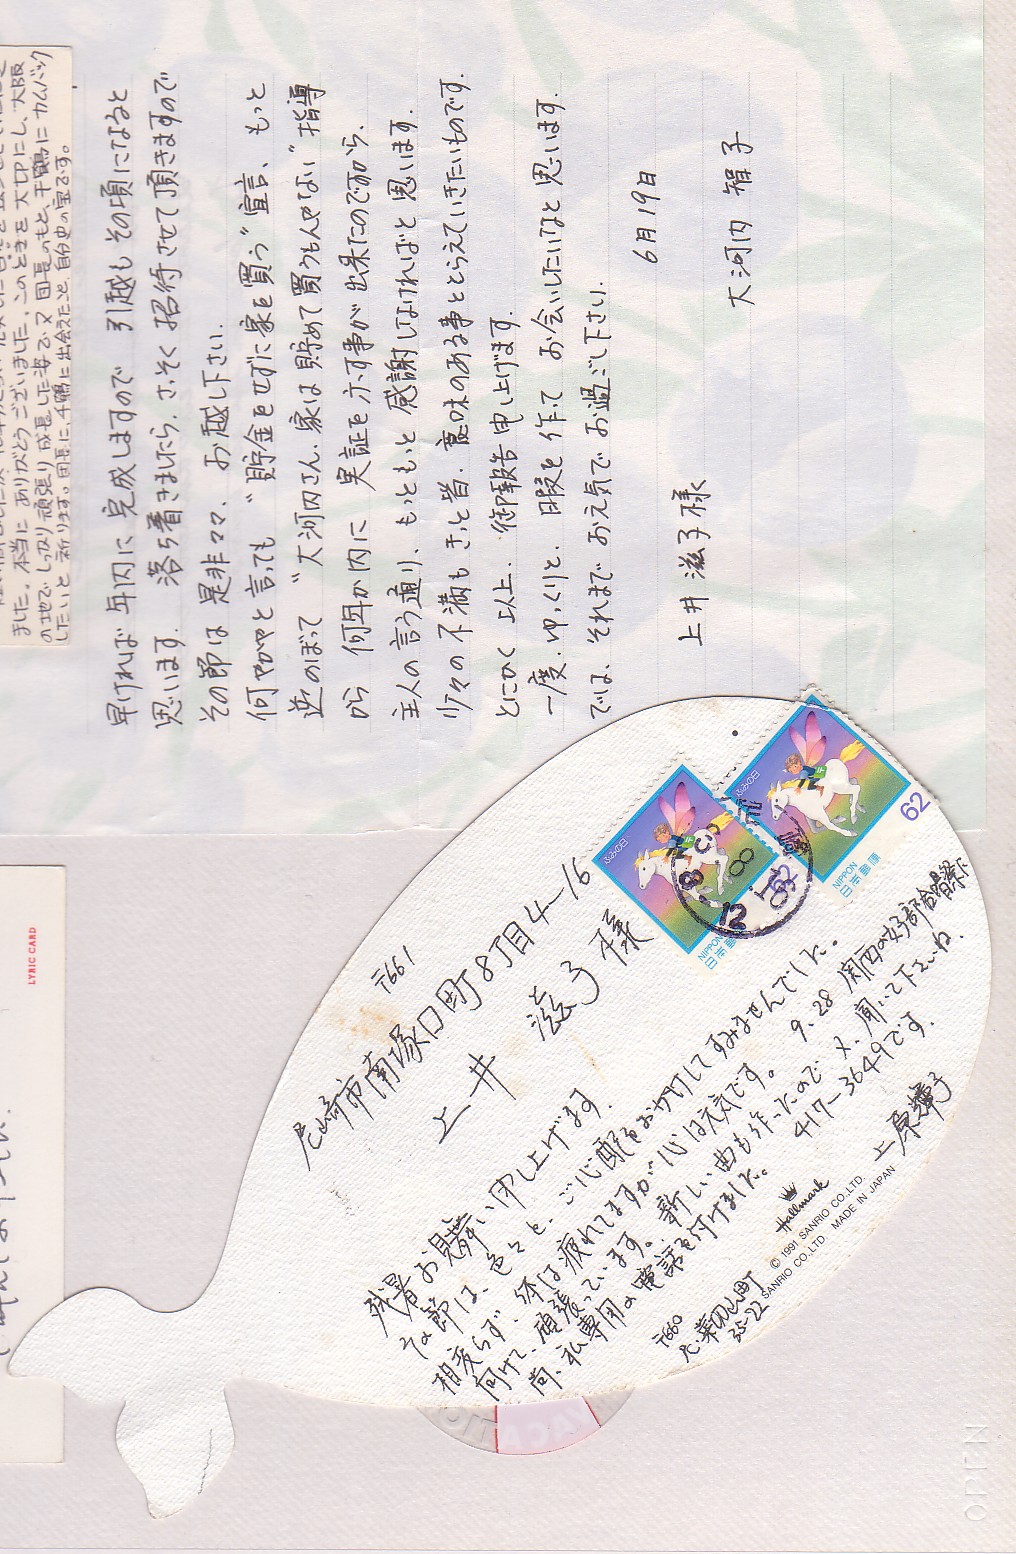 ました。本当に ありがとうございました。このどきを 大切にし、大阪
の地で しっかり頑張り 成長した姿で、又 団長のもと、千鶴に カムバック
したいと 祈ります。団長に、千鶴に出会えたこと、自分史の宝です。
早ければ 年内に 完成しますので 引越も その頃になると
思います 落ち着きましたら、さっそく 招待させて 頂きますので
その節は 是非々々、お越し下さい。
何やかやと 言っても "貯金をせずに家を買う" 宣言、もっと
逆のぼって "大河内さん、家は貯めて買うもんやない" 指導
から 何年か内に 実証を示す事が 出来たのですから、
主人の言う通り、もっともっと 感謝しなければと 思います。
少々の不満も きっと皆、意味のある事ととらえていきたいものです。
とにかく 以上、御報告申し上げます。
一度、ゆっくりと、暇を作って お会いしたいなと思います。
では、それまで お元気で お過ごし下さい。
6月19日
大河内 智子
上井 滋子様
LYRIC CARD
〒661
尼崎市南塚口町8丁目4-16
上井 滋子 様
ふみの日
NIPPON
日本郵便
62
ふみの日
NIPPON
日本郵便
62
尼崎
8 12
残暑お見舞い申し上げます。
その節は、色々と、ご心配をおかけしてすみませんでした。
相変らず、体は疲れてますが心は元気です。 9.28 関西の女子部合唱祭に
向けて、頑張っています。新しい曲も作ったので 又、聞いて下さいね。
尚、私専用の電話を付けました。 417-3649です。
〒660
35-22
上原
Hallmark
© 1991 SANRIO CO.,LTD.
SANRIO CO.,LTD MADE IN JAPAN
OPEN